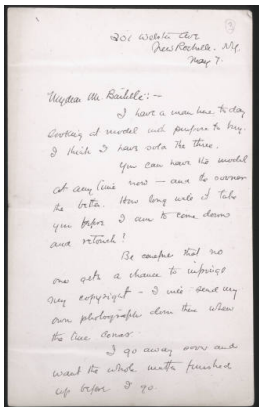 301 Webster Ave
New Rochelle. N.Y.
May 7.
My dear Mr. :—
I have a man here to day
looking at model and purpose to buy.
I think I have sold the three.
You can have the model
at any time now — and the sooner
the better. How long will it take
you before I am to come down
and retouch!
Be careful that no
one gets a chance to infringe
my copyright — I will send my
own photographer down then when
the time comes.
I go away soon and
want the whole matter finished
up before I go.